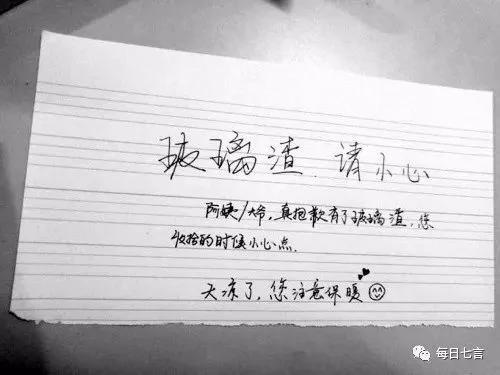 玻璃渣.请小心
阿姨/大爷,真抱歉有了玻璃渣,您
收拾的时候小心点.
天凉了,您注意保暖
每日七言